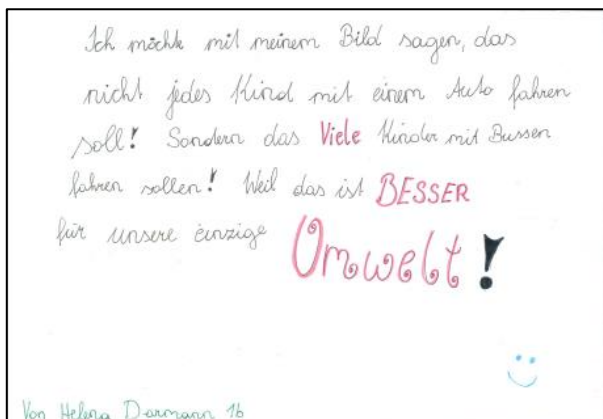 Ich möchte mit meinem Bild sagen, das
nicht jedes Kind mit einem Auto fahren
soll! Sondern das Viele Kinder mit Bussen
fahren sollen! Weil das ist BESSER
für unsere einzige Umwelt!
Von Helena Darmann 1b